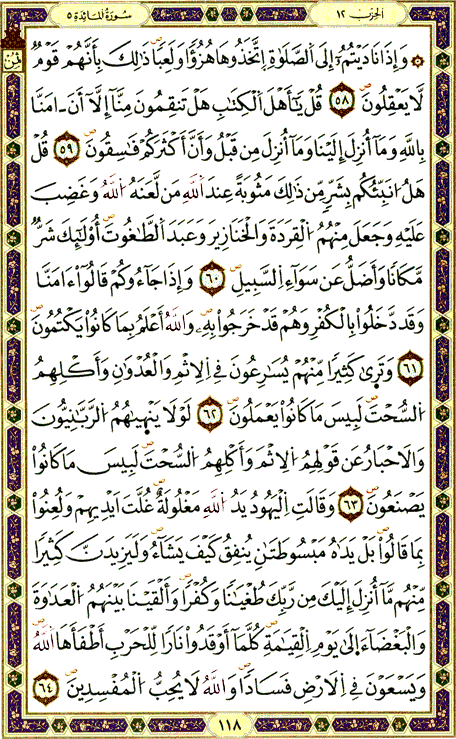 سُورَةُ المَائِدَة ٥
الحِزب ١٢
ثمن
وَإِذَا نَادَيْتُمُۥٓ إِلَى اَ۬لصَّلَوٰةِ اِ۪تَّخَذُوهَا هُزُؤاٗ وَلَعِباٗ ذَٰلِكَ بِأَنَّهُمْ قَوْمٞ
لَّا يَعْقِلُونَ ٥٨ قُلْ يَٰٓأَهْلَ اَ۬لْكِتَٰبِ هَلْ تَنقِمُونَ مِنَّآ إِلَّآ أَنَ اٰمَنَّا
بِاللَّهِ وَمَآ أُنزِلَ إِلَيْنَا وَمَآ أُنزِلَ مِن قَبْلُ وَأَنَّ أَكْثَرَكُمْ فَٰسِقُونَ ٥٩ قُلْ
هَلُ ا۟نَبِّئُكُم بِشَرّٖ مِّن ذَٰلِكَ مَثُوبَةً عِندَ اَ۬للَّهِ مَن لَّعَنَهُ اُ۬للَّهُ وَغَضِبَ
عَلَيْهِ وَجَعَلَ مِنْهُمُ اُ۬لْقِرَدَةَ وَالْخَنَازِيرَ وَعَبَدَ اَ۬لطَّٰغُوتَ أُوْلَٰٓئِكَ شَرّٞ
مَّكَاناٗ وَأَضَلُّ عَن سَوَآءِ اِ۬لسَّبِيلِ ٦٠ وَإِذَا جَآءُوكُمْ قَالُوٓاْ ءَامَنَّا
وَقَد دَّخَلُواْ بِالْكُفْرِ وَهُمْ قَدْ خَرَجُواْ بِهِۦ وَاللَّهُ أَعْلَمُ بِمَا كَانُواْ يَكْتُمُونَ
٦١ وَتَرَىٰ كَثِيراٗ مِّنْهُمْ يُسَٰرِعُونَ فِي اِ۬لِاثْمِ وَالْعُدْوَٰنِ وَأَكْلِهِمُ
اُ۬لسُّحْتَ لَبِيسَ مَا كَانُواْ يَعْمَلُونَ ٦٢ لَوْلَا يَنْهَيٰهُمُ اُ۬لرَّبَّٰنِيُّونَ
وَالَاحْبَارُ عَن قَوْلِهِمُ اُ۬لِاثْمَ وَأَكْلِهِمُ اُ۬لسُّحْتَ لَبِيسَ مَا كَانُواْ
يَصْنَعُونَ ٦٣ وَقَالَتِ اِ۬لْيَهُودُ يَدُ اُ۬للَّهِ مَغْلُولَةٌ غُلَّتَ اَيْدِيهِمْ وَلُعِنُواْ
بِمَا قَالُواْ بَلْ يَدَٰهُ مَبْسُوطَتَٰنِ يُنفِقُ كَيْفَ يَشَآءُ وَلَيَزِيدَنَّ كَثِيراٗ
مِّنْهُم مَّآ أُنزِلَ إِلَيْكَ مِن رَّبِّكَ طُغْيَٰناٗ وَكُفْراٗ وَأَلْقَيْنَا بَيْنَهُمُ اُ۬لْعَدَٰوَةَ
وَالْبَغْضَآءَ إِلَىٰ يَوْمِ اِ۬لْقِيَٰمَةِ كُلَّمَآ أَوْقَدُواْ نَاراٗ لِّلْحَرْبِ أَطْفَأَهَا اَ۬للَّهُ
وَيَسْعَوْنَ فِي اِ۬لَارْضِ فَسَاداٗ وَاللَّهُ لَا يُحِبُّ اُ۬لْمُفْسِدِينَ ٦٤
١١٨